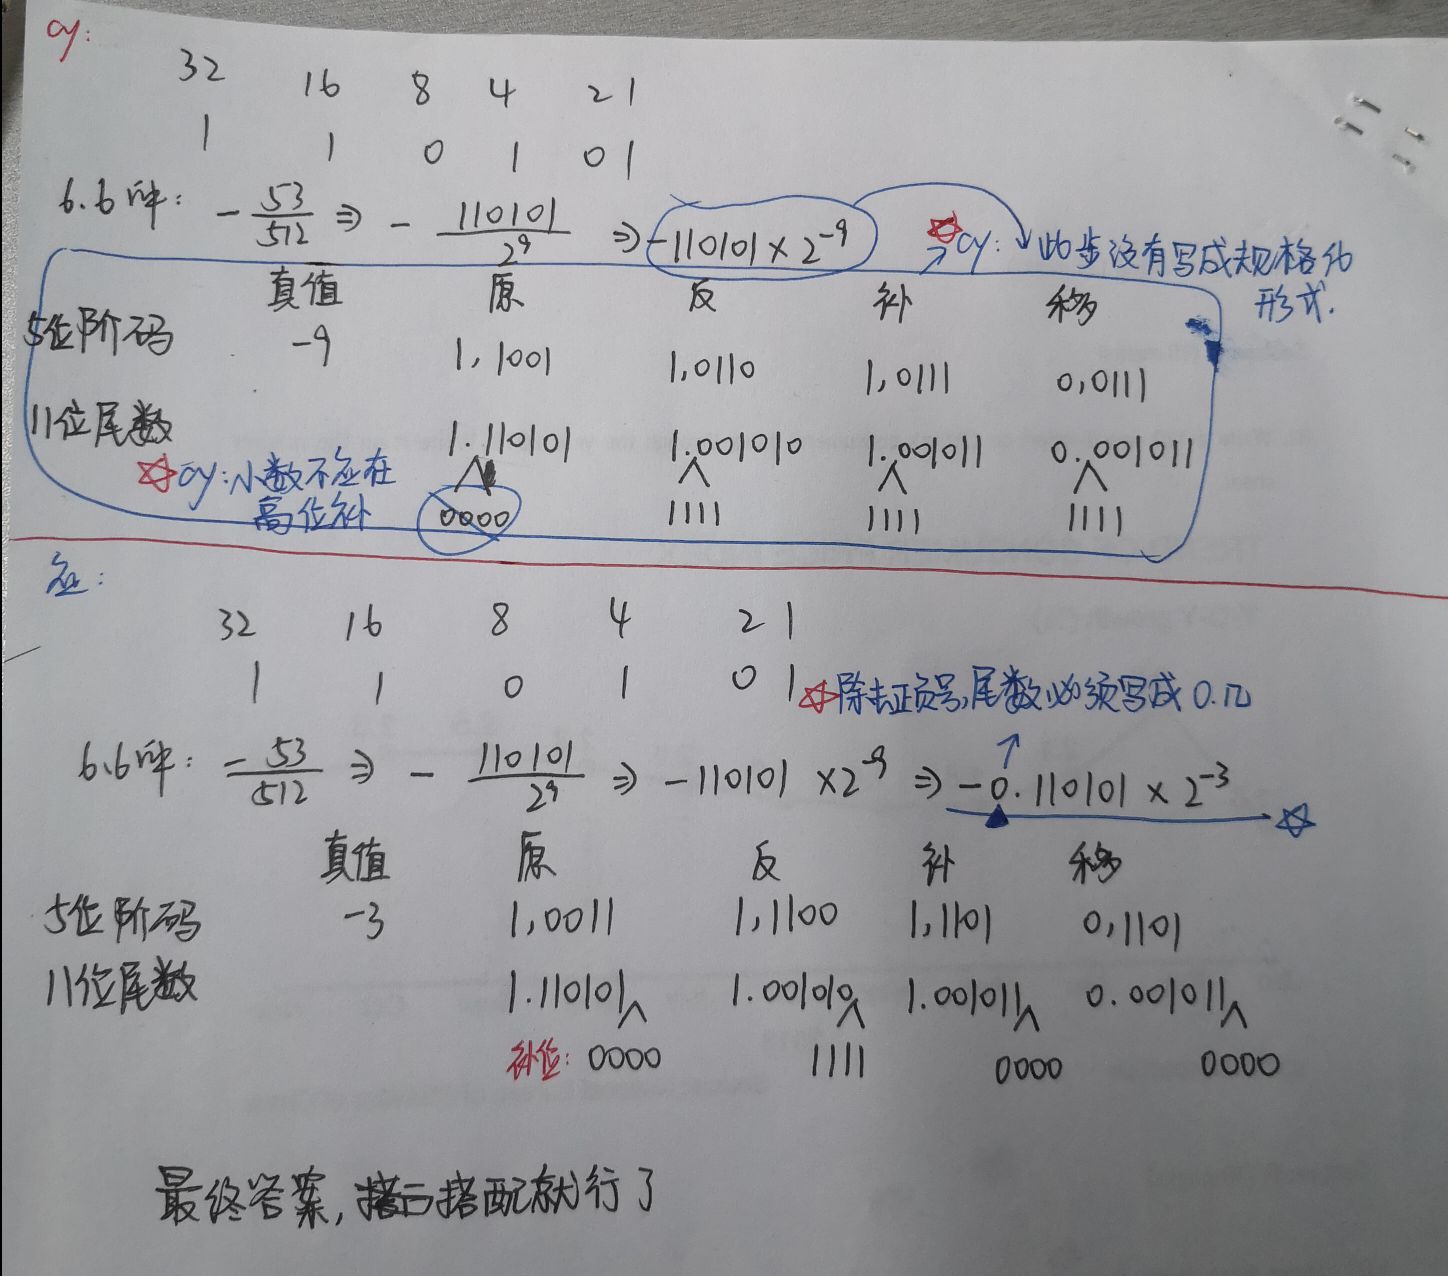 cy:
32 16 8 4 2 1
1 1 0 1 0 1
6.6中: -53/512 ⇒ -110101/2^9 ⇒ -110101×2^-9 ☆cy: 此步没有写成规格化
形式.
真值 原 反 补 移
5位阶码 -9 1,1001 1,0110 1,0111 0,0111
11位尾数 1.110101 1.001010 1.001011 0.001011
☆cy:小数不应在
高位补 0000 1111 1111 1111
正:
32 16 8 4 2 1
1 1 0 1 0 1
☆除去正负号,尾数必须写成0.几
6.6中: -53/512 ⇒ -110101/2^9 ⇒ -110101×2^-9 ⇒ -0.110101×2^-3 ☆
真值 原 反 补 移
5位阶码 -3 1,0011 1,1100 1,1101 0,1101
11位尾数 1.110101 1.001010 1.001011 0.001011
补位: 0000 1111 0000 0000
最终答案,搭配就行了